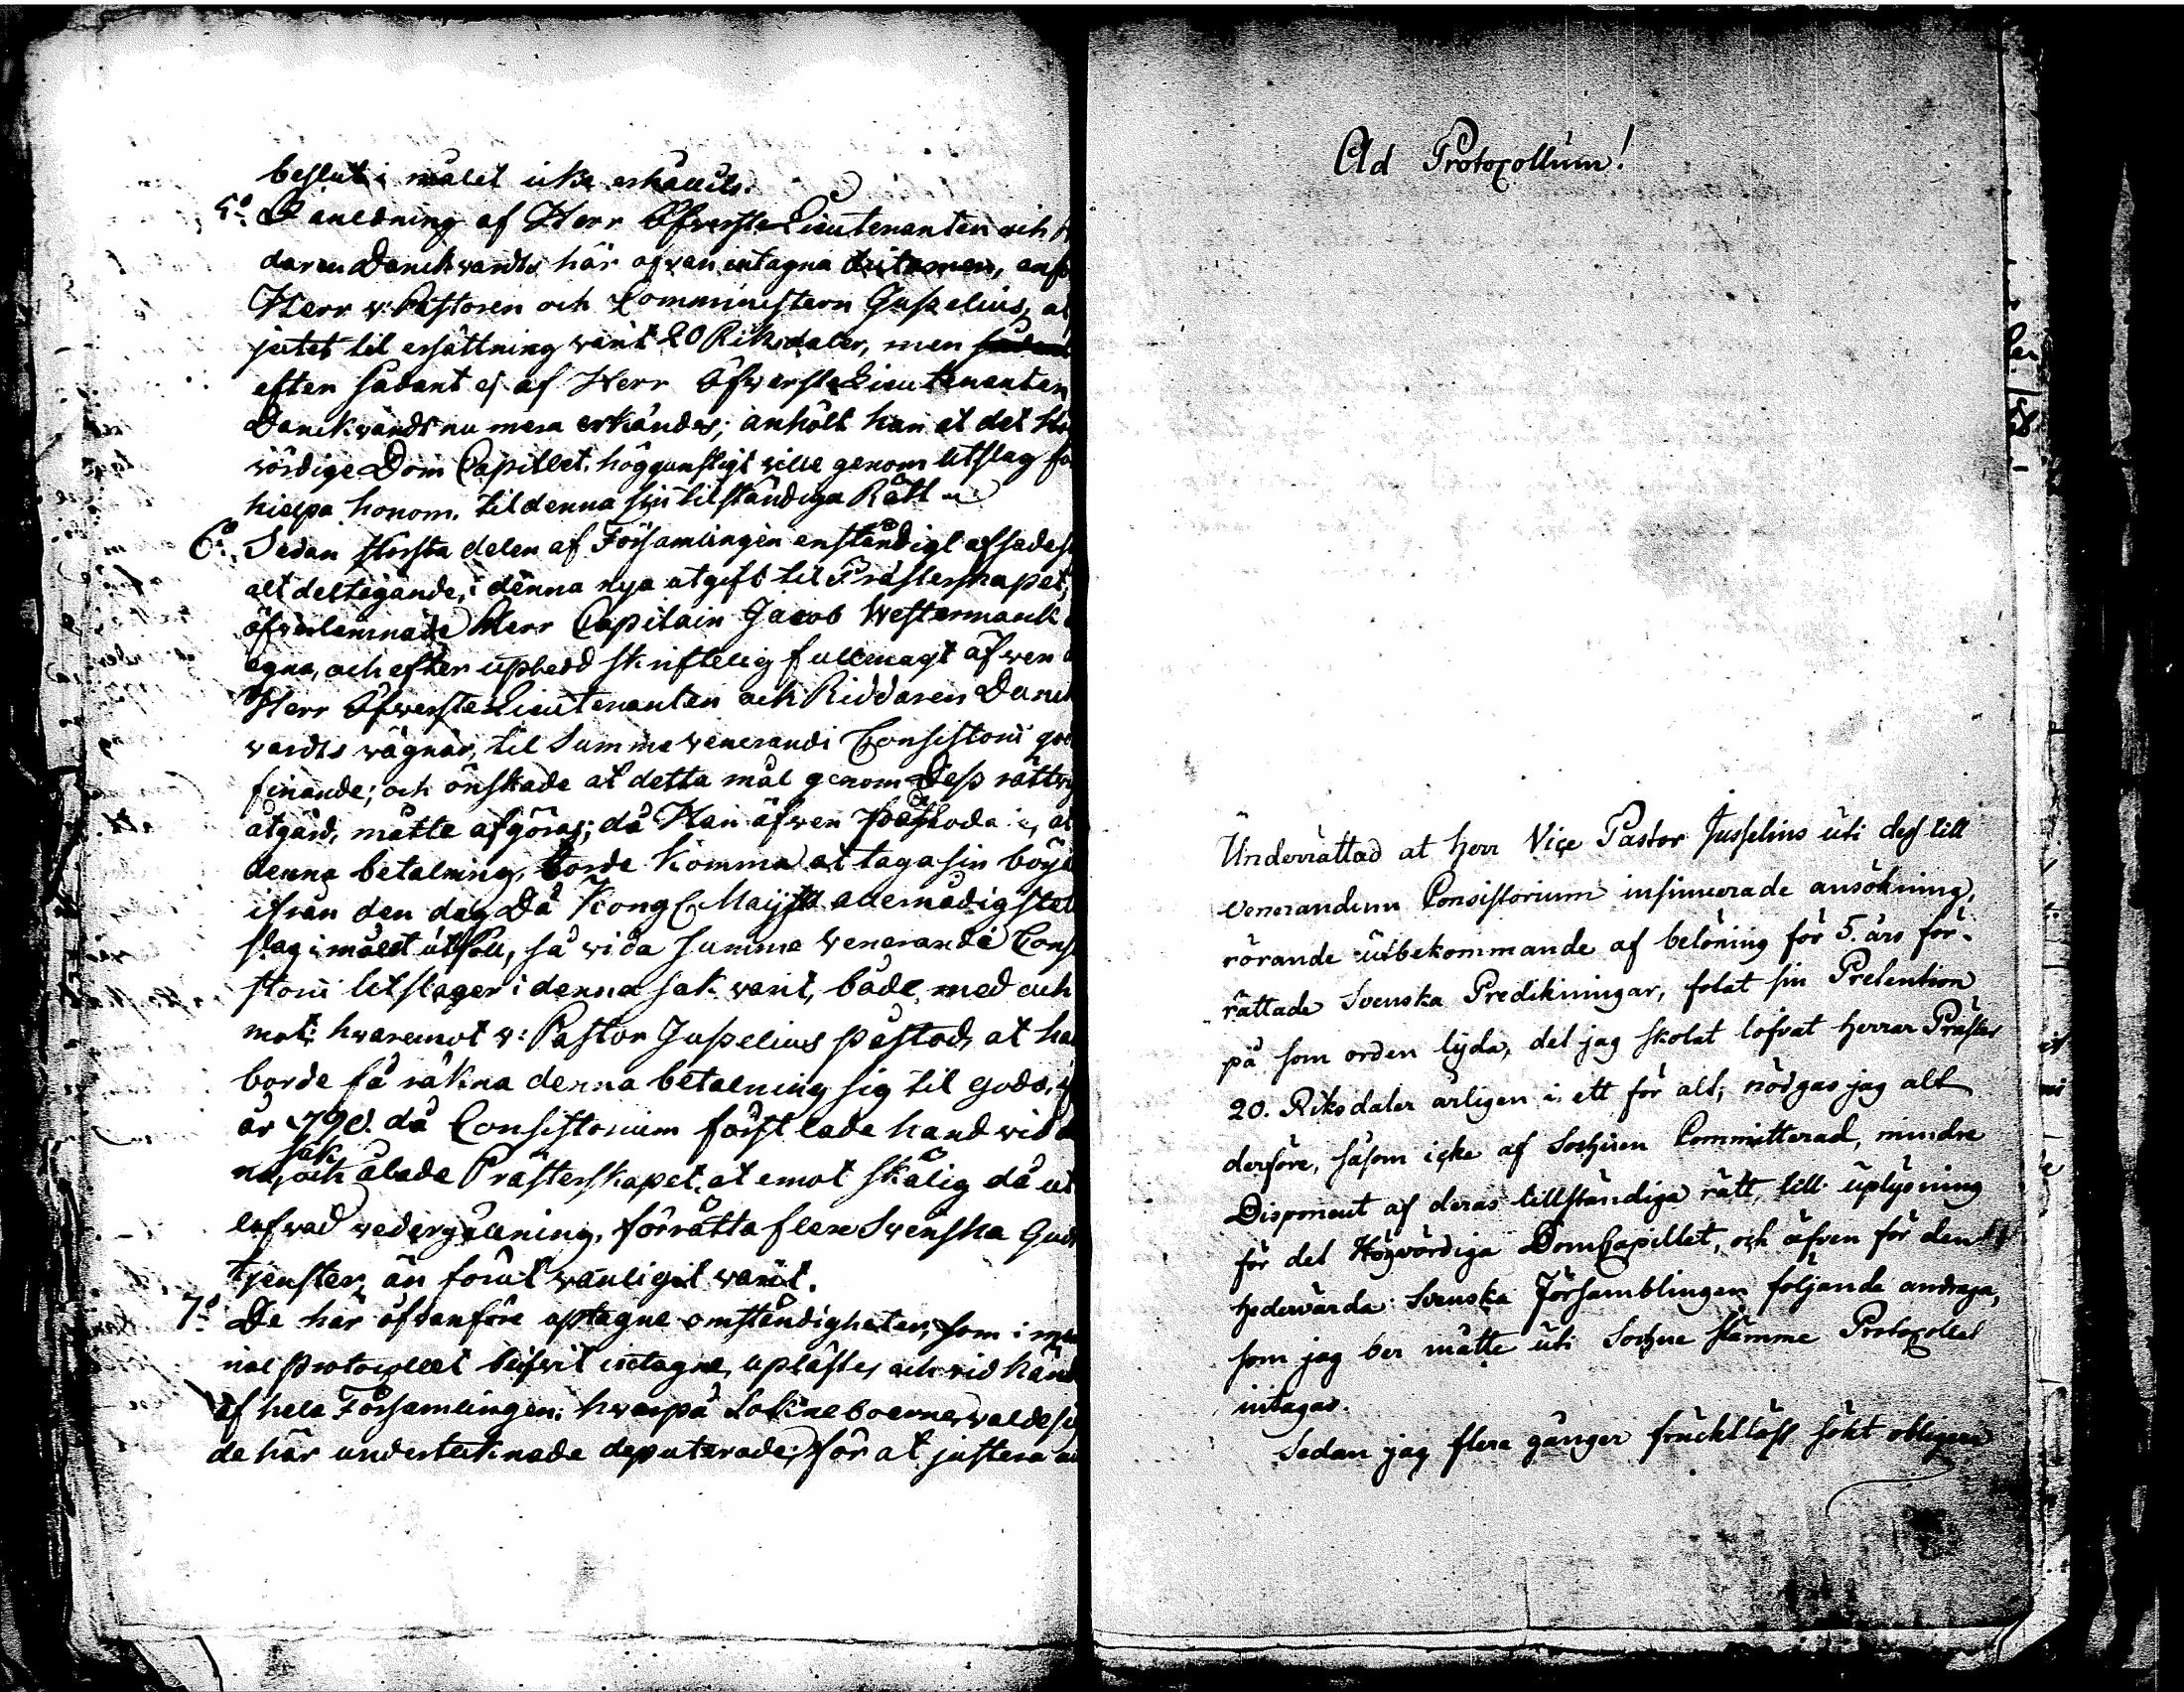 beslut i målet icke erhållits.
5:o I anledning af Herr Öfverste Lieutenanten och
daren Danckvardts här ofvan intagna dictamen,
Herr v: Pastoren och Comministern Jusselius, at
jutet til ersättning varit 20 Riksdaler, men
efter sådant ej af Herr Öfverste Lieutenanten
Danckvardt nu mera erkändes; anhölt han at det
vördige Dom Capitlet höggunstigt ville genom Utslag
hielpa honom til denna sin tilständiga Rätt
6:o Sedan största delen af Församlingen enständigt afsades
alt deltagande, i denna nya utgift til Prästerskapet,
öfverlemnade Herr Capitain Jacob Westermarck
egna, och efter uptedd skriftelig fullmagt äfven
Herr Öfverste Lieutenanten och Riddaren Danck
vardts vägnar, til Summe Venerandi Consistorii
finande; och önskade at detta mål genom Dess rättvi
åtgärd, måtte afgöras; då Han äfven påstod
denna betalning, borde komma at taga sin börj
ifrån den dag Då Kongl. Maij:tts allernådigste
slag i målet utföll, så vida Summe Venerandi Consi
storii Utslager i denna sak varit, både med och
mot: hvaremot v: Pastor Jusselius påstod, at han
borde få räkna denna betalning sig til godo,
år 1790. då Consistorium först lade hand vid
sak
na, och ålade Prästerskapet, at emot skälig då ut
lofvad vedergällning, förrätta flere Svenska Guds
tjenster, än förut vanligit varit.
7:o De här ofvanföre uptagne omständigheter, som i
protocollet blifvit intagne, uplästes och vid
af hela Församlingen: hvarpå Sokneboerne valde
de här undertecknade deputerade, för at justera
Ad Protocollum!
Underrättad at Herr Vice Pastor Jusselius uti dess till
Venerandum Consistorium insinuerade ansökning,
rörande utbekommande af belöning för 5. års för-
rättade Svenska Predikningar, fotat sin Pretention
på som orden lyda, det jag skolat lofvat Herrar Präster
20. Riksdaler årligen i ett för alt; nödgas jag alt
derföre, såsom icke af Sochnen Committerad, mindre
Disponent af deras tillständiga rätt, till uplysning
för det Högvördiga DomCapitlet, och äfven för den
hedervärda Svenska Församblingen följande andraga,
som jag ber måtte uti Sochne stämme Protocollet
intagas.
Sedan jag flere gånger frucktlöst sökt obligera